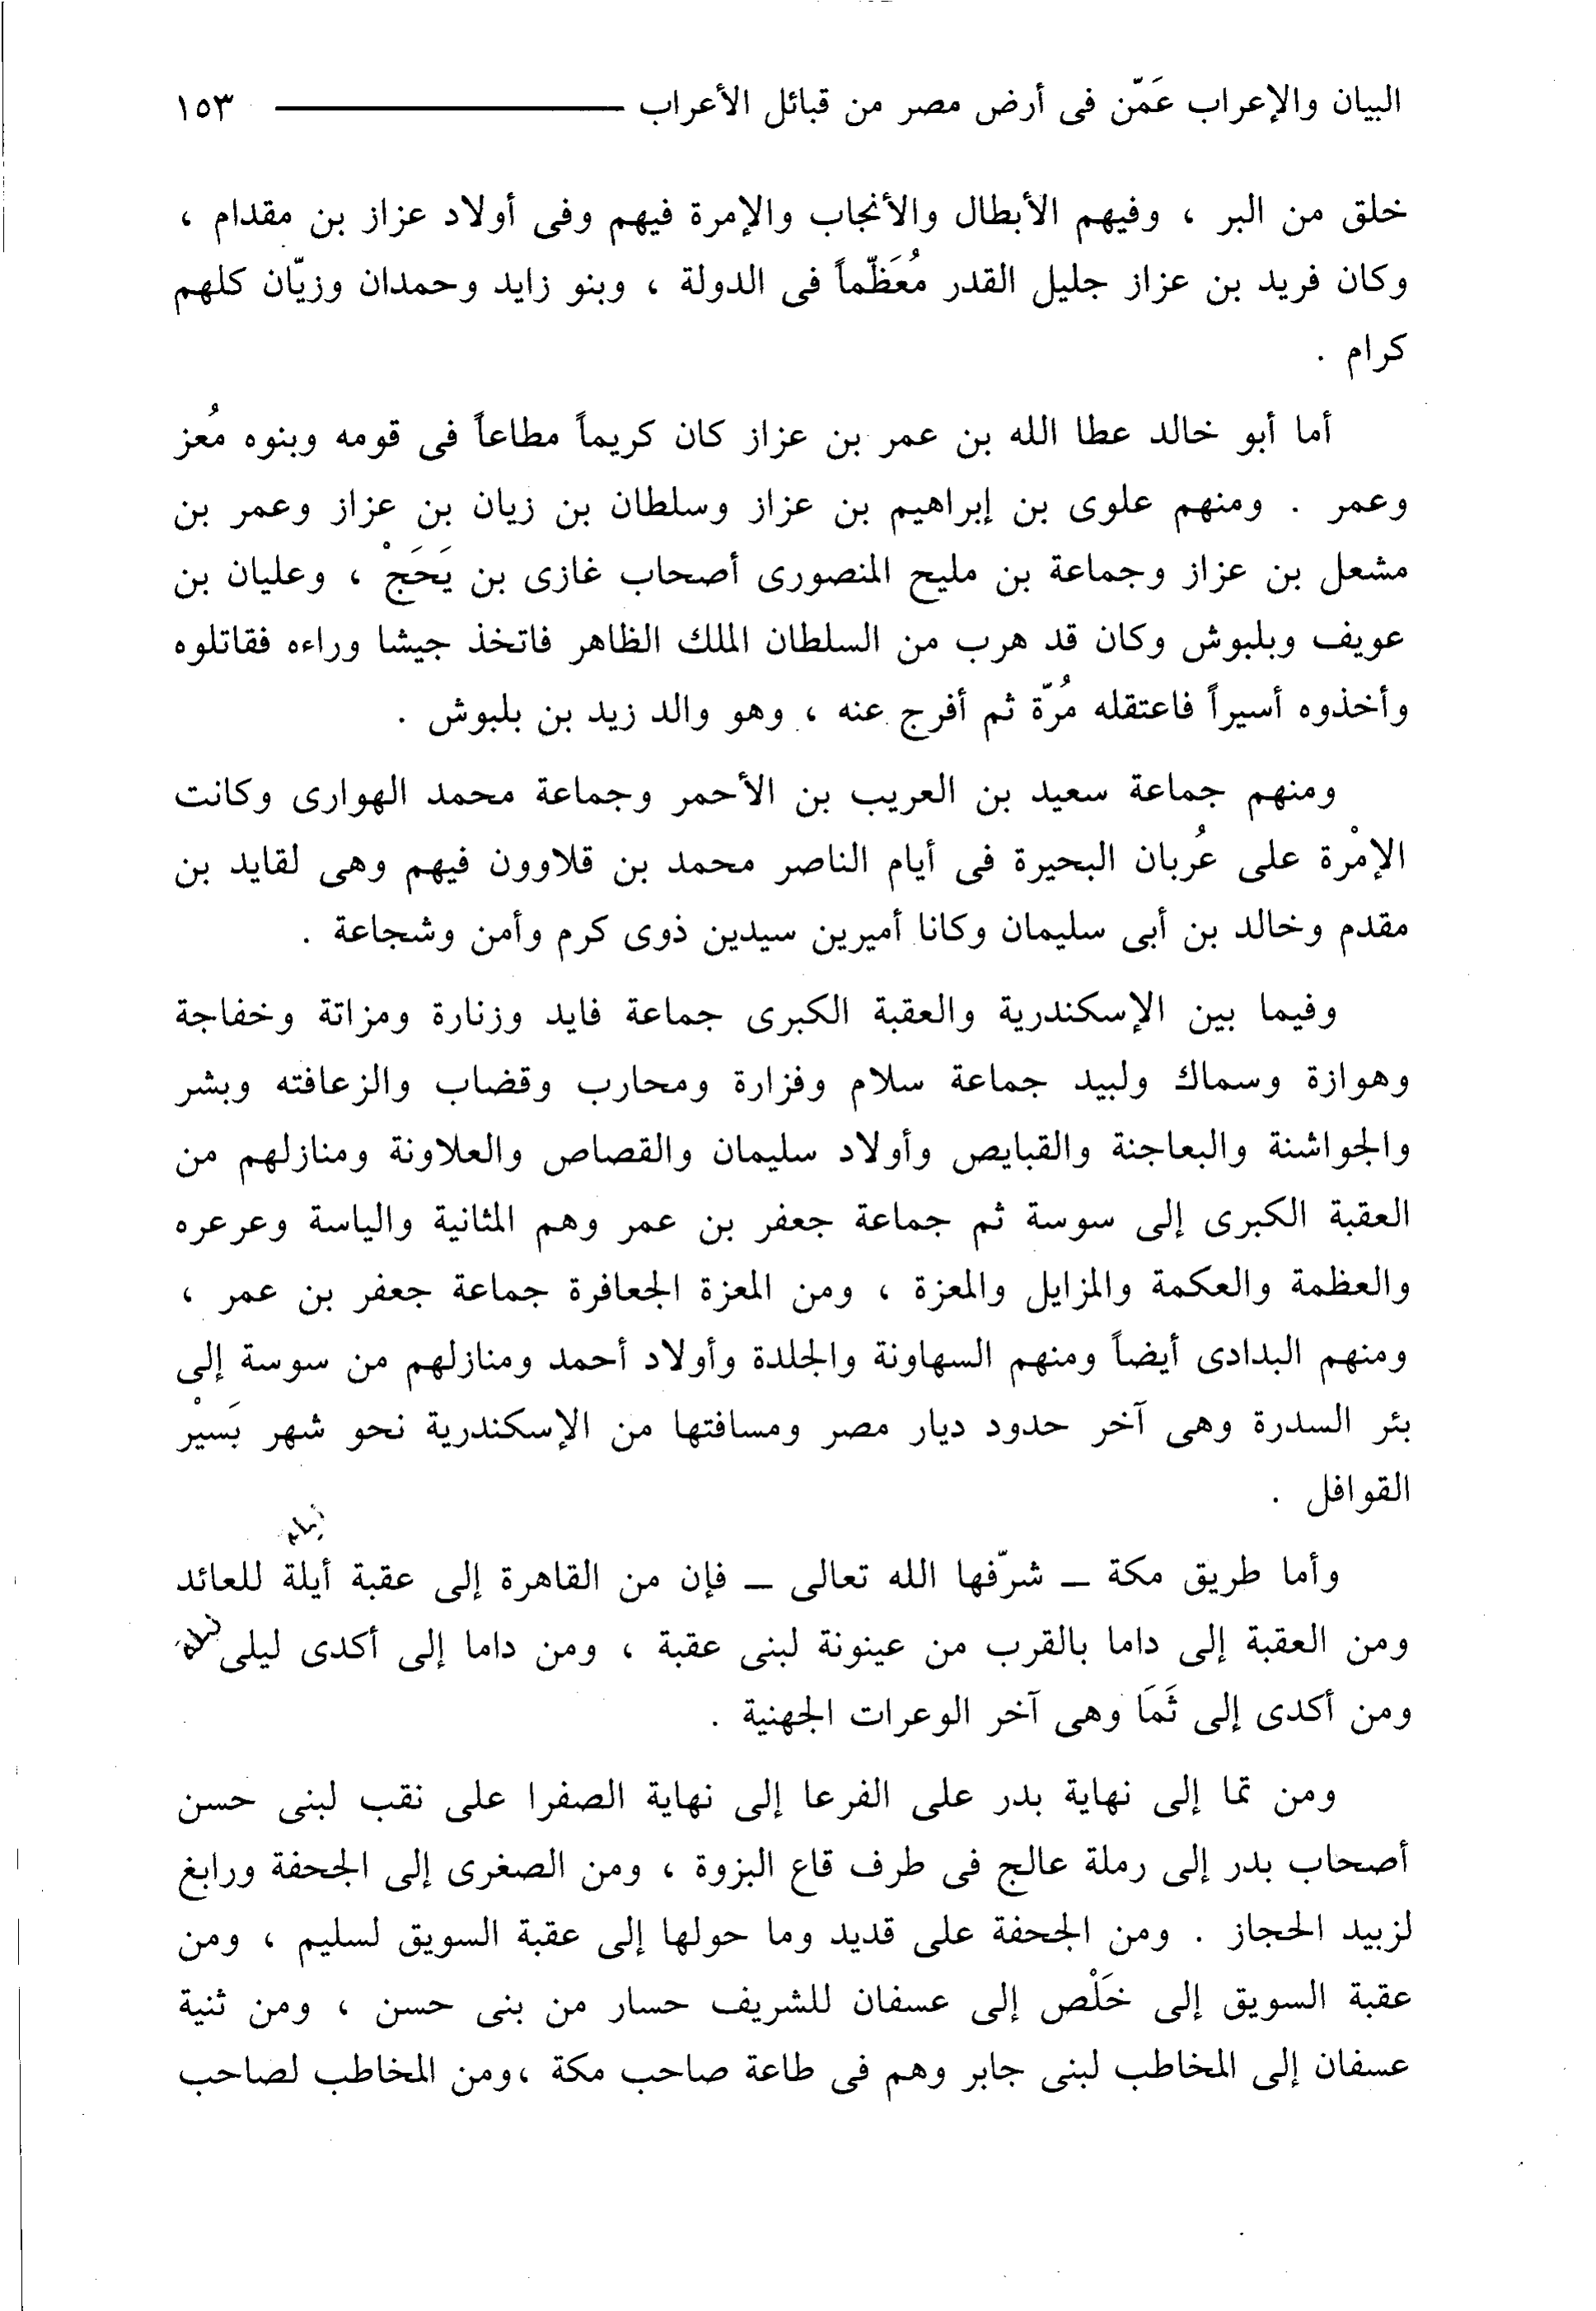 البيان والإعراب عَمّن فى أرض مصر من قبائل الأعراب ——— ١٥٣
خلق من البر ، وفيهم الأبطال والأنجاب والإمرة فيهم وفى أولاد عزاز بن مقدام ،
وكان فريد بن عزاز جليل القدر مُعَظّماً فى الدولة ، وبنو زايد وحمدان وزيّان كلهم
كرام .
أما أبو خالد عطا الله بن عمر بن عزاز كان كريماً مطاعاً فى قومه وبنوه مُعز
وعمر . ومنهم علوى بن إبراهيم بن عزاز وسلطان بن زيان بن عزاز وعمر بن
مشعل بن عزاز وجماعة بن مليح المنصورى أصحاب غازى بن يَحَجْ ، وعليان بن
عويف وبلبوش وكان قد هرب من السلطان الملك الظاهر فاتخذ جيشا وراءه فقاتلوه
وأخذوه أسيراً فاعتقله مُرّة ثم أفرج عنه ، وهو والد زيد بن بلبوش .
ومنهم جماعة سعيد بن العريب بن الأحمر وجماعة محمد الهوارى وكانت
الإمْرة على عُربان البحيرة فى أيام الناصر محمد بن قلاوون فيهم وهى لقايد بن
مقدم وخالد بن أبى سليمان وكانا أميرين سيدين ذوى كرم وأمن وشجاعة .
وفيما بين الإسكندرية والعقبة الكبرى جماعة فايد وزنارة ومزاتة وخفاجة
وهوازة وسماك ولبيد جماعة سلام وفزارة ومحارب وقضاب والزعافته وبشر
والجواشنة والبعاجنة والقبايص وأولاد سليمان والقصاص والعلاونة ومنازلهم من
العقبة الكبرى إلى سوسة ثم جماعة جعفر بن عمر وهم المثانية والياسة وعرعره
والعظمة والعكمة والمزايل والمعزة ، ومن المعزة الجعافرة جماعة جعفر بن عمر ،
ومنهم البدادى أيضاً ومنهم السهاونة والجلدة وأولاد أحمد ومنازلهم من سوسة إلى
بئر السدرة وهى آخر حدود ديار مصر ومسافتها من الإسكندرية نحو شهر بَسيْر
القوافل .
وأما طريق مكة ــ شرّفها الله تعالى ــ فإن من القاهرة إلى عقبة أيلة للعائد
ومن العقبة إلى داما بالقرب من عينونة لبنى عقبة ، ومن داما إلى أكدى ليلى
ومن أكدى إلى ثَمَا وهى آخر الوعرات الجهنية .
ومن تما إلى نهاية بدر على الفرعا إلى نهاية الصفرا على نقب لبنى حسن
أصحاب بدر إلى رملة عالج فى طرف قاع البزوة ، ومن الصغرى إلى الجحفة ورابغ
لزبيد الحجاز . ومن الجحفة على قديد وما حولها إلى عقبة السويق لسليم ، ومن
عقبة السويق إلى خَلْص إلى عسفان للشريف حسار من بنى حسن ، ومن ثنية
عسفان إلى المخاطب لبنى جابر وهم فى طاعة صاحب مكة ،ومن المخاطب لصاحب